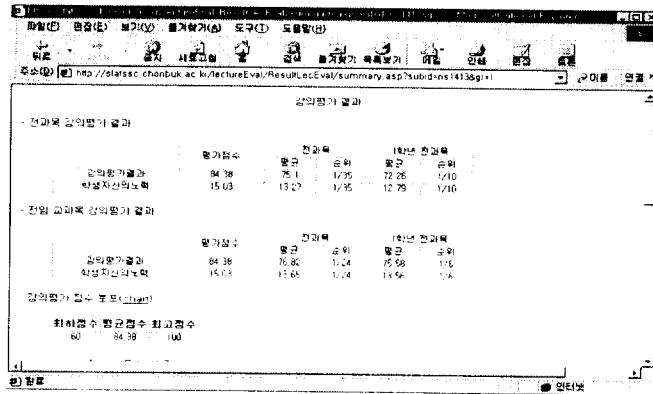 파일(F) 편집(E) 보기(V) 즐겨찾기(A) 도구(T) 도움말(H)
뒤로 중지 새로고침 홈 검색 즐겨찾기 목록보기 메일 인쇄 편집 토론
주소(D) http://statssc.chonbuk.ac.kr/lectureEval/ResultLecEval/summary.asp?subid=ns1413&gr=1 이동 연결
강의평가 결과
- 전과목 강의평가 결과
평가점수 전과목 1학년 전과목
평균 순위 평균 순위
강의평가결과 84.38 75.1 1/35 72.26 1/10
학생자신의노력 15.03 13.27 1/35 12.79 1/10
- 전임 교과목 강의평가 결과
평가점수 전과목 1학년 전과목
평균 순위 평균 순위
강의평가결과 84.38 76.82 1/24 75.58 1/6
학생자신의노력 15.03 13.65 1/24 13.56 1/6
강의평가 점수 분포(chart)
최하점수 평균점수 최고점수
60 84.38 100
완료 인터넷